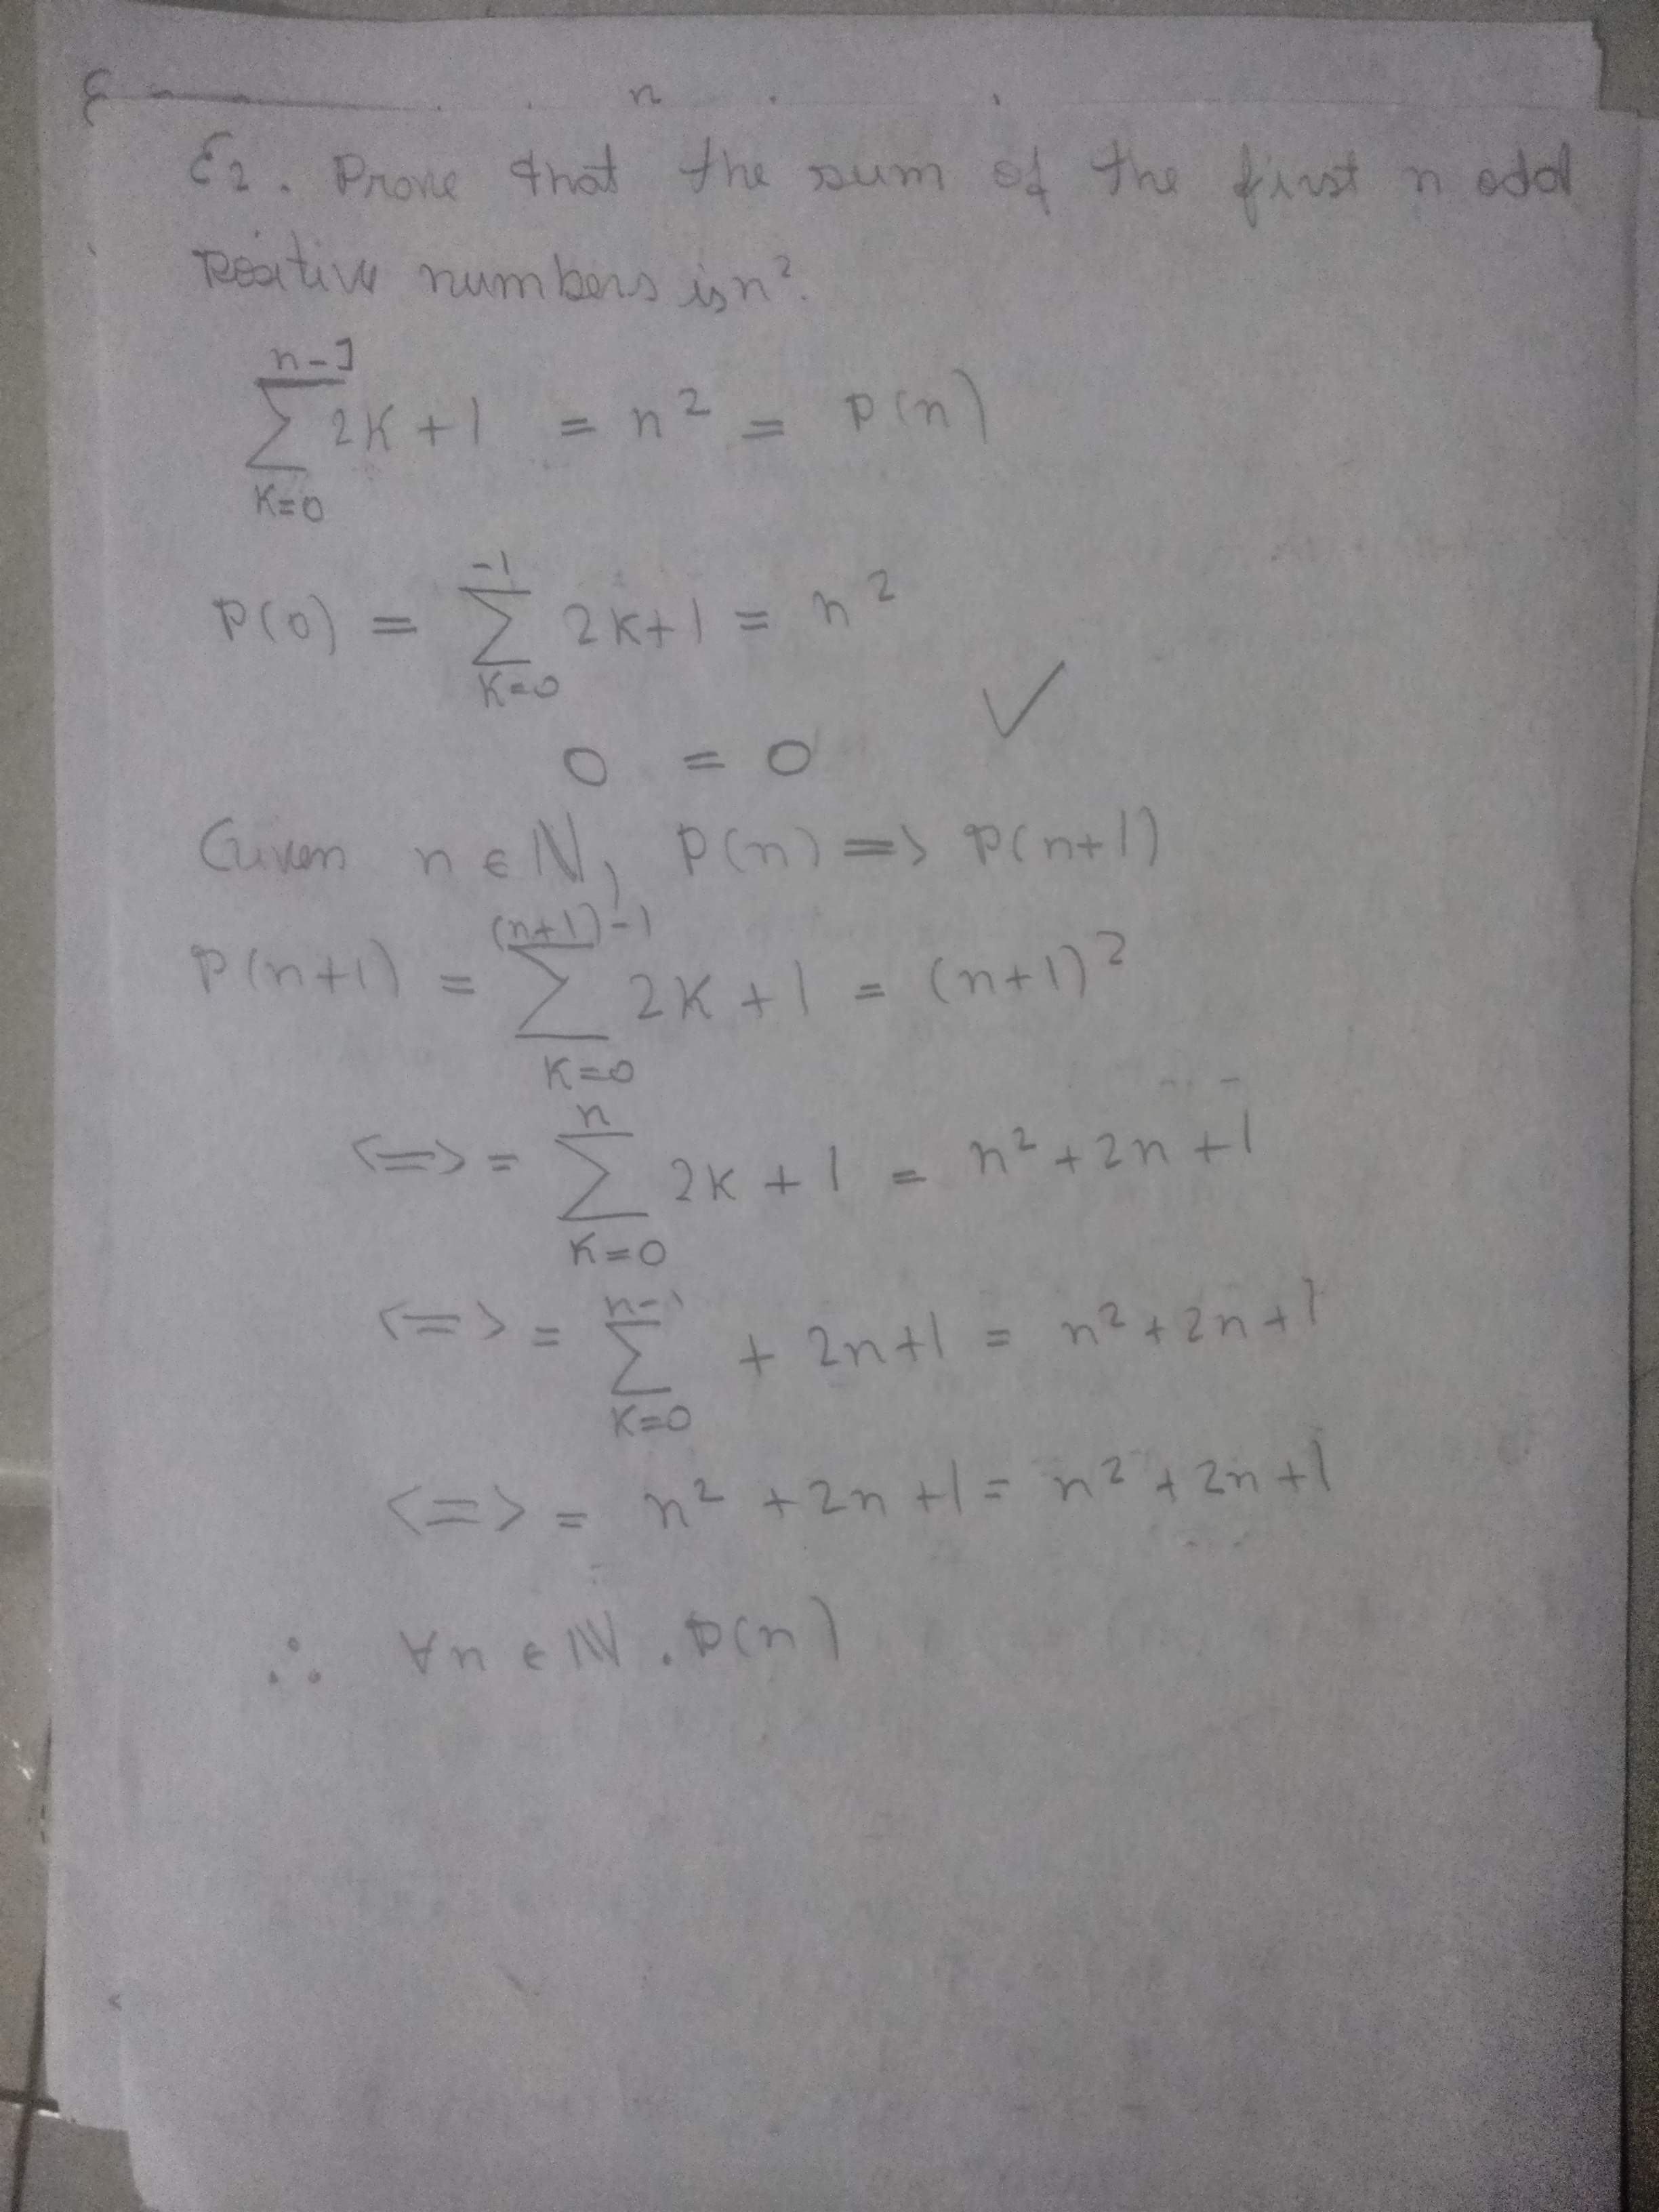 n
E2. Prove that the sum of the first n odd
positive numbers is n².
n-1
∑ 2K+1 = n² = P(n)
K=0
-1
P(0) = ∑ 2K+1 = n²
K=0
0 = 0 ✓
Given n ∈ ℕ, P(n) => P(n+1)
(n+1)-1
P(n+1) = ∑ 2K+1 = (n+1)²
K=0
n
<=> = ∑ 2K+1 = n²+2n+1
K=0
n-1
<=> = ∑ + 2n+1 = n²+2n+1
K=0
<=> = n²+2n+1 = n²+2n+1
∴ ∀n ∈ ℕ . P(n)